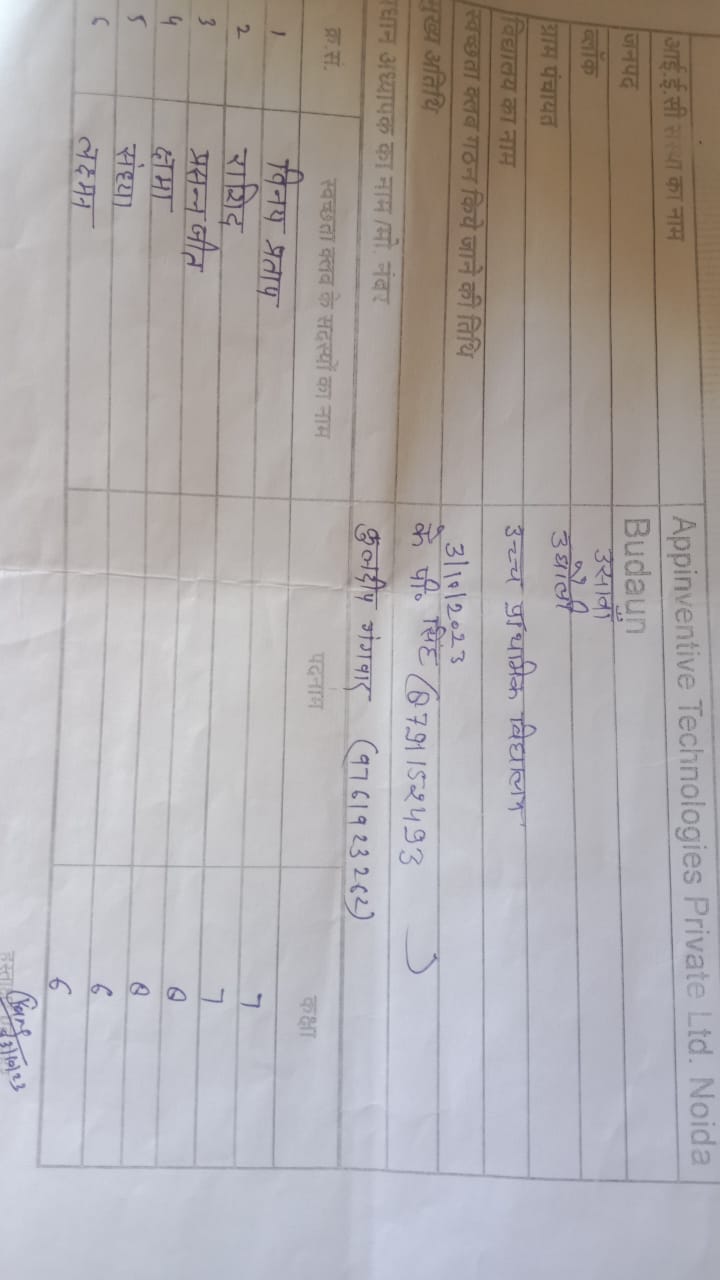 आई.ई.सी संस्था का नाम Appinventive Technologies Private Ltd. Noida
जनपद Budaun
ब्लॉक उसावाँ
ग्राम पंचायत
विद्यालय का नाम उच्च प्राथमिक विद्यालय
स्वच्छता क्लव गठन किये जाने की तिथि 3/10/2023
मुख्य अतिथि के पी० सिंह
प्रधान अध्यापक का नाम/मो. नंवर कुलदीप गंगवार
क्र.सं. स्वच्छता क्लव के सदस्यों का नाम पदनाम कक्षा
1 विनय प्रताप 7
2 राशिद 7
3 प्रसन्नजीत 8
4 क्षमा 8
5 संध्या 6
6 लक्ष्मन 6
3/10/23